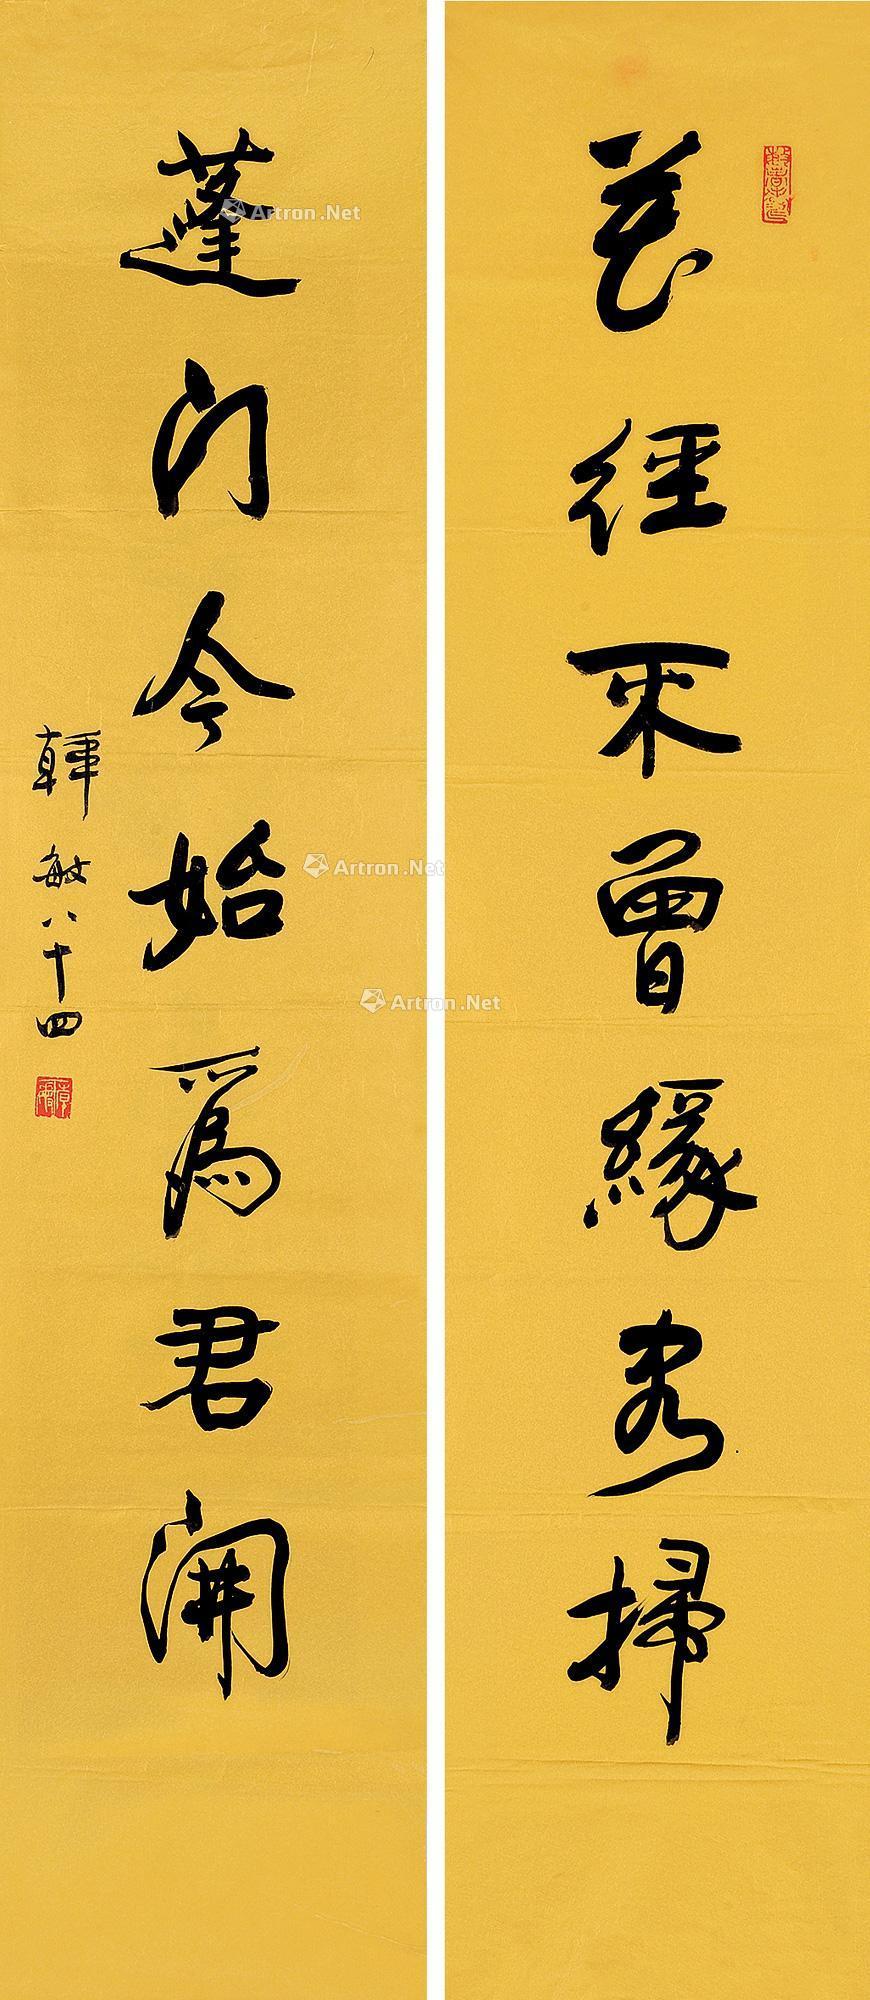 花徑不曾緣客掃
蓬门今始為君開
韓敏八十四
Artron.Net
Artron.Net
Artron.Net